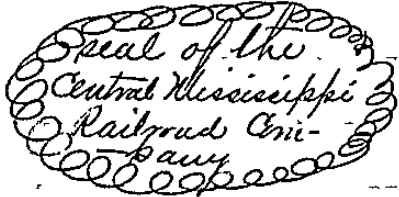 seal of the
Central Mississippi
Railroad Com-
pany